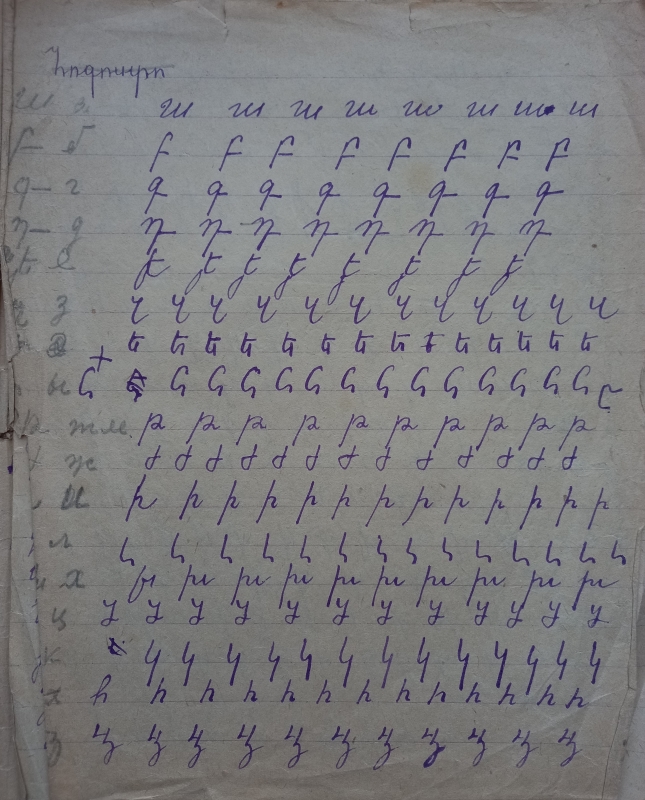 ա а ա ա ա ա ա ա ա ա
բ б բ բ բ բ բ բ բ բ
գ – г գ գ գ գ գ գ գ գ
դ – д դ դ դ դ դ դ դ դ
ե е ե ե ե ե ե ե ե ե
զ з զ զ զ զ զ զ զ զ զ զ զ զ
է է է է է է է է է է է է է է
ы ը ը ը ը ը ը ը ը ը ը ը ը ը ը ը
թ թ թ թ թ թ թ թ թ թ թ
ж ժ ժ ժ ժ ժ ժ ժ ժ ժ ժ ժ ժ ժ
и ի ի ի ի ի ի ի ի ի ի ի ի ի
л լ լ լ լ լ լ լ լ լ լ լ լ լ լ
х խ խ խ խ խ խ խ խ խ խ
ц ծ ծ ծ ծ ծ ծ ծ ծ ծ ծ ծ ծ
к կ կ կ կ կ կ կ կ կ կ կ կ կ
հ հ հ հ հ հ հ հ հ հ հ հ հ
з ձ ձ ձ ձ ձ ձ ձ ձ ձ ձ ձ